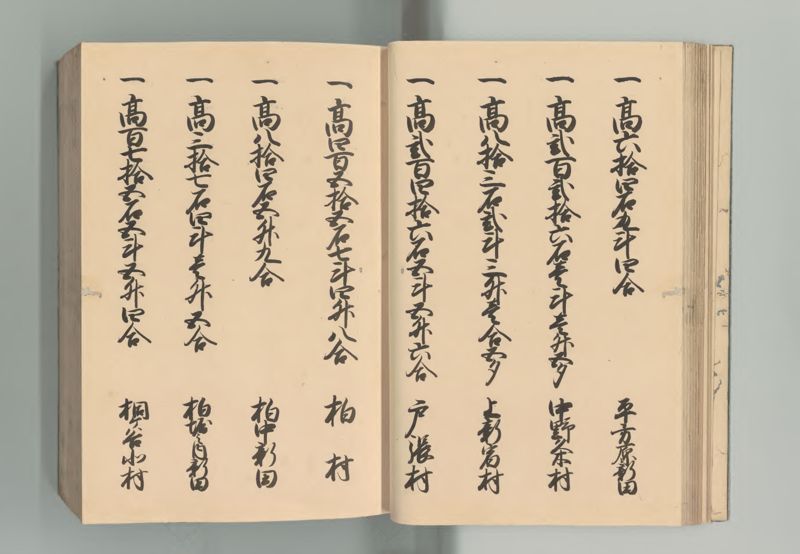 一 高六拾四石九斗四合 平方原新田
一 高弐百弐拾六石壱斗壱升五夕 中野久木村
一 高八拾三石弐斗三升壱合五夕 上新宿村
一 高弐百四拾六石五斗五升六合 戸張村
一 高四百五拾五石七斗四升八合 柏村
一 高八拾四石五升九合 柏中新田
一 高三拾七石四斗壱升五合 柏堀之内新田
一 高百七拾五石五斗五升四合 桐ケ谷村